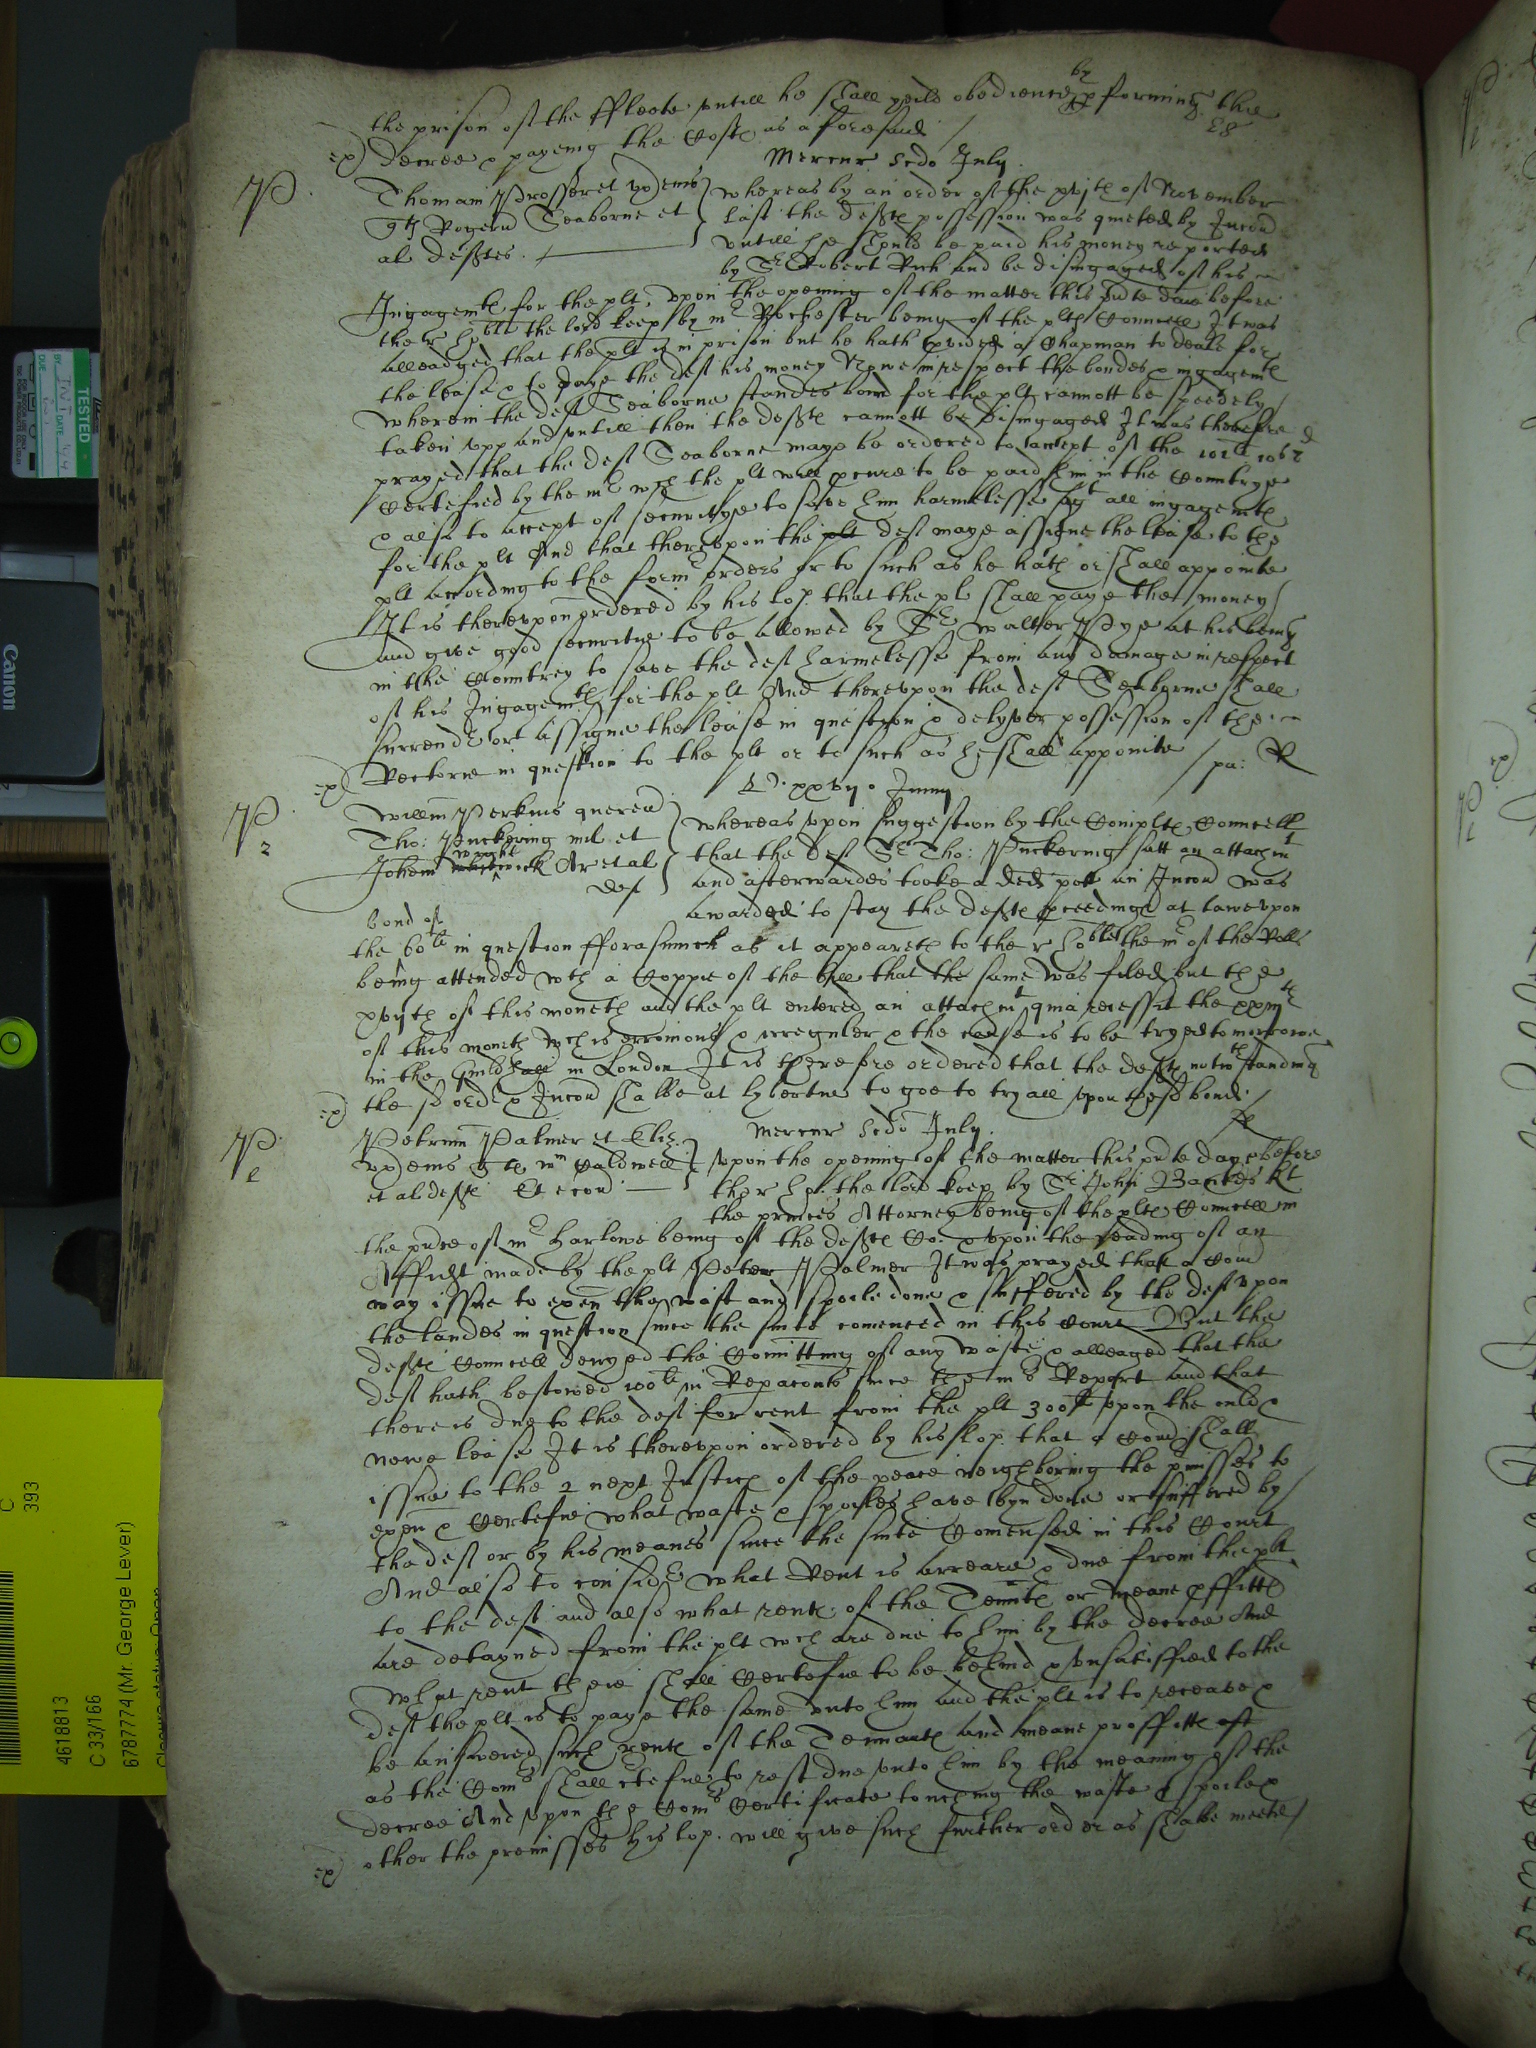 the prison of the ffleete untill he shall yeild obedience by pforming the
ex) decree & payeing the Costs as aforesaid /
Mercur scdo July
P
Thomam Prosser et ux quers
Rogeru Seaborne et
al deftes
whereas by an order of the xvjth of November
last the defts possession was quieted by Iniucon
untill he should be paid his money reported
by Sr Robert Rich and be disingaged of his
Ingagemts for the plt, upon the opening of the matter this pnte daie before
the r hoble the lord keep by mr Rochester being of the plts Councell It was
alleadged that the plt is in prison but he hath pvided a Chapman to deale for
the lease & to paye the deft his money Nowe in respect the bondes & ingagemts
wherein the deft Seaborne standes bound for the plt cannott be speedely /
taken upp and untill then the defts cannott be disingaged It was therefore
prayed that the deft Seaborne maye be ordered to accept of the 101li 10s
Certefied by the mr wch the plt will pcure to be paid him in the Countrye
& also to accept of securitye to save him harmelesse agt all ingagemts
for the plt And that thereupon the plt deft maye assigne the lease to the
plt according to the formr orders or to such as he hath or shall appointe
It is thereupon ordered by his lop. that the plt shall paye the money /
and give good securitie to be allowed by Sr walter Pye at his being
in the Countrey to save the deft harmelesse from any damage in respect
of his Ingagemts for the plt And thereupon the deft Seaborne shall
surrendr or assigne the lease in question & delyver possession of the
ex) Rectorie in question to the plt or to such as he shall appointe / pa: R
xxvij Junij
P
2
Willm Perkins quer
Tho: Puckering mil et
Johem wright Ar et al
def
whereas upon suggestion by the Complts Councell
that the deft Sr Tho: Puckering satt an attachmt
and afterwardes tooke a ded pot an Iniucon was
awarded to stay the defts pceedings at lawe upon
bond of
the 60li in question fforasmuch as it appeareth to the r hoble the mr of the Rolls
being attended wth a Coppie of the bill that the same was filed but the
xvijth of this moneth and the plt entered an attachmt quia recessit the
of this moneth wch is erronious & irreguler & the cause is to be tryed to morrowe
in the Guildhall in London It is therefore ordered that the defts notwthstanding
ex) the sd ordr & Iniucon shalbe at lybertie to goe to tryall upon the sd bond /
Mercur scdo July
P
Petrum Palmer et Eliz.
ux wm Caldwell
et al defts
upon the opening of the matter this pnte daye before
the r ho: the lord keep by Sr John Banckes kt
the princes Attorney being of the plts Councell in
the pnce of mr Harlowe being of the defts Co: & upon the reading of an
Affidt made by the plt Peter Palmer It was prayed that a Comi
may issue to exen the wast and spoile done & suffered by the deft upon
the landes in question since the suite comenced in this Court But the
defts Councell denyed the Comitting of any waste & alleaged that the
deft hath bestowed 100li in Repacons since the mrs Report and that
there is due to the deft for rent from the plt 300li upon the ould &
newe lease It is thereupon ordered by his lop. that a Comi shall
issue to the 2 next Justices of the peace neighboring the pmisses to
exen & Certefie what waste & spoiles have byn done or suffered by /
the deft or by his meanes since the suite Comensed in this Court
And also to considr what Rent is arreare & due from the plt
to the deft and also what rents of the Tennts or meane pffitts
are detayned from the plt wch are due to him by the decree And
what rent there shall Certefie to be behind & unsatisffied to the
deft the plt is to paye the same unto him and the plt is to receave &
be answered such rents of the Tennants and meane proffitts
as the Comrs shall ctefie to rest due unto him by the meaning of the
decree And upon the Comrs Certificate touching the waste & spoile &
ex) other the premisses his lop. will give such further order as shalbe meete /
4618813
C 33/166
6787774 (Mr. George Lever)
C
393
Canon
TESTED